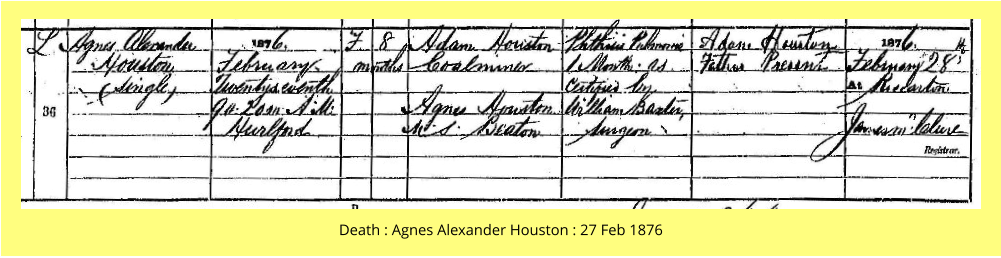 L
36
Agnes Alexander
Houston
(Single)
1876.
February
Twenty seventh
9h 20m A.M.
Hurlford
F
8
months
Adam Houston
Coalminer
Agnes Houston
M. S. Beaton
Phthisis Pulmonis
1 Month. as
Certified by
William Baxter,
Surgeon
Adam Houston
Father Present
1876.
February 28th
At Riccarton
James McClure
Registrar.
Death : Agnes Alexander Houston : 27 Feb 1876